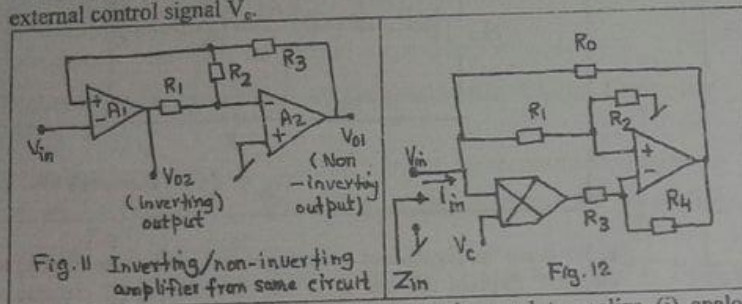 external control signal Vc.
R3
R1
R2
+
-
A1
-
A2
+
Vin
V01
V02
(inverting)
output
(Non
-inverting
output)
Fig. 11 Inverting/non-inverting
amplifier from same circuit
R0
R1
R2
Vin
+
-
Iin
R3
R4
Vc
Zin
Fig. 12